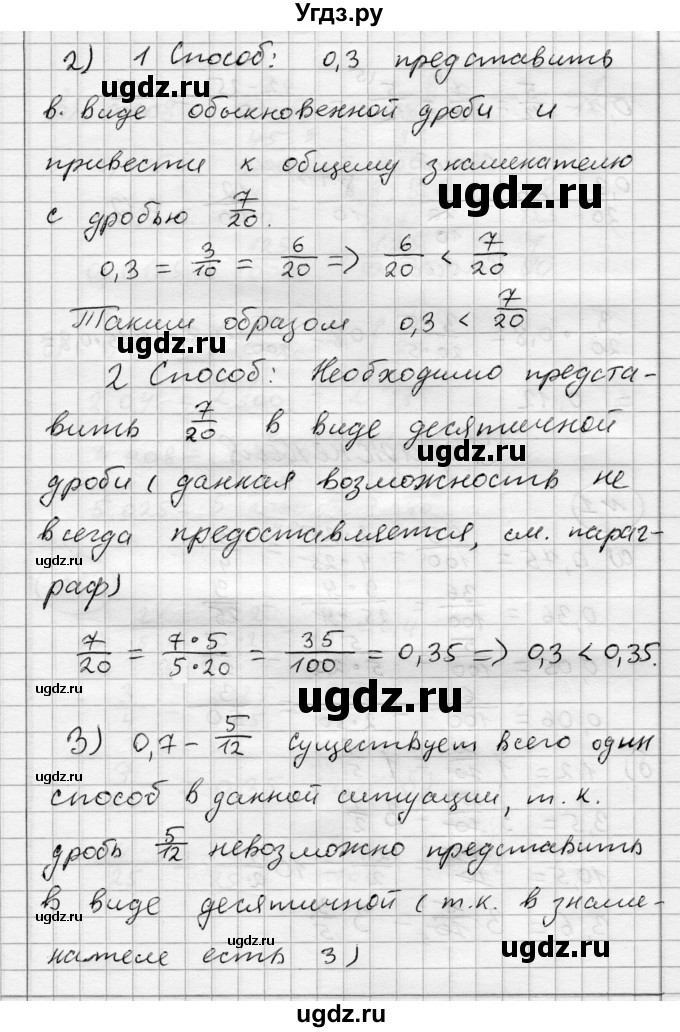 Угдз.ру
2) 1 Способ: 0,3 представить
в виде обыкновенной дроби и
привести к общему знаменателю
ugdz.ru
с дробью 7/20.
0,3 = 3/10 = 6/20 => 6/20 < 7/20
Таким образом 0,3 < 7/20
ugdz.ru
ugdz.ru
2 Способ: Необходимо предста-
вить 7/20 в виде десятичной
ugdz.ru
дроби ( данная возможность не
всегда предоставляется, см. параг-
ugdz.ru
раф)
ugdz.ru
7/20 = 7·5/5·20 = 35/100 = 0,35 => 0,3 < 0,35.
ugdz.ru
3) 0,7 - 5/12 существует всего один
ugdz.ru
способ в данной ситуации, т.к.
ugdz.ru
дробь 5/12 невозможно представить
в виде десятичной ( т.к. в знаме-
ugdz.ru
нателе есть 3)
ugdz.ru
ugdz.ru